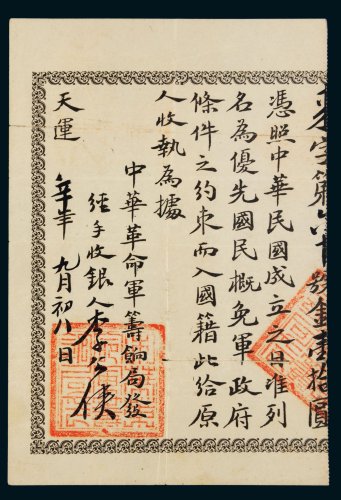 憑照中華民國成立之日准列
名為優先國民概免軍政府
條件之約束而入國籍此給原
人收執為據
中華革命軍籌餉局發
經手收銀人李公俠
天運辛亥年九月初八日